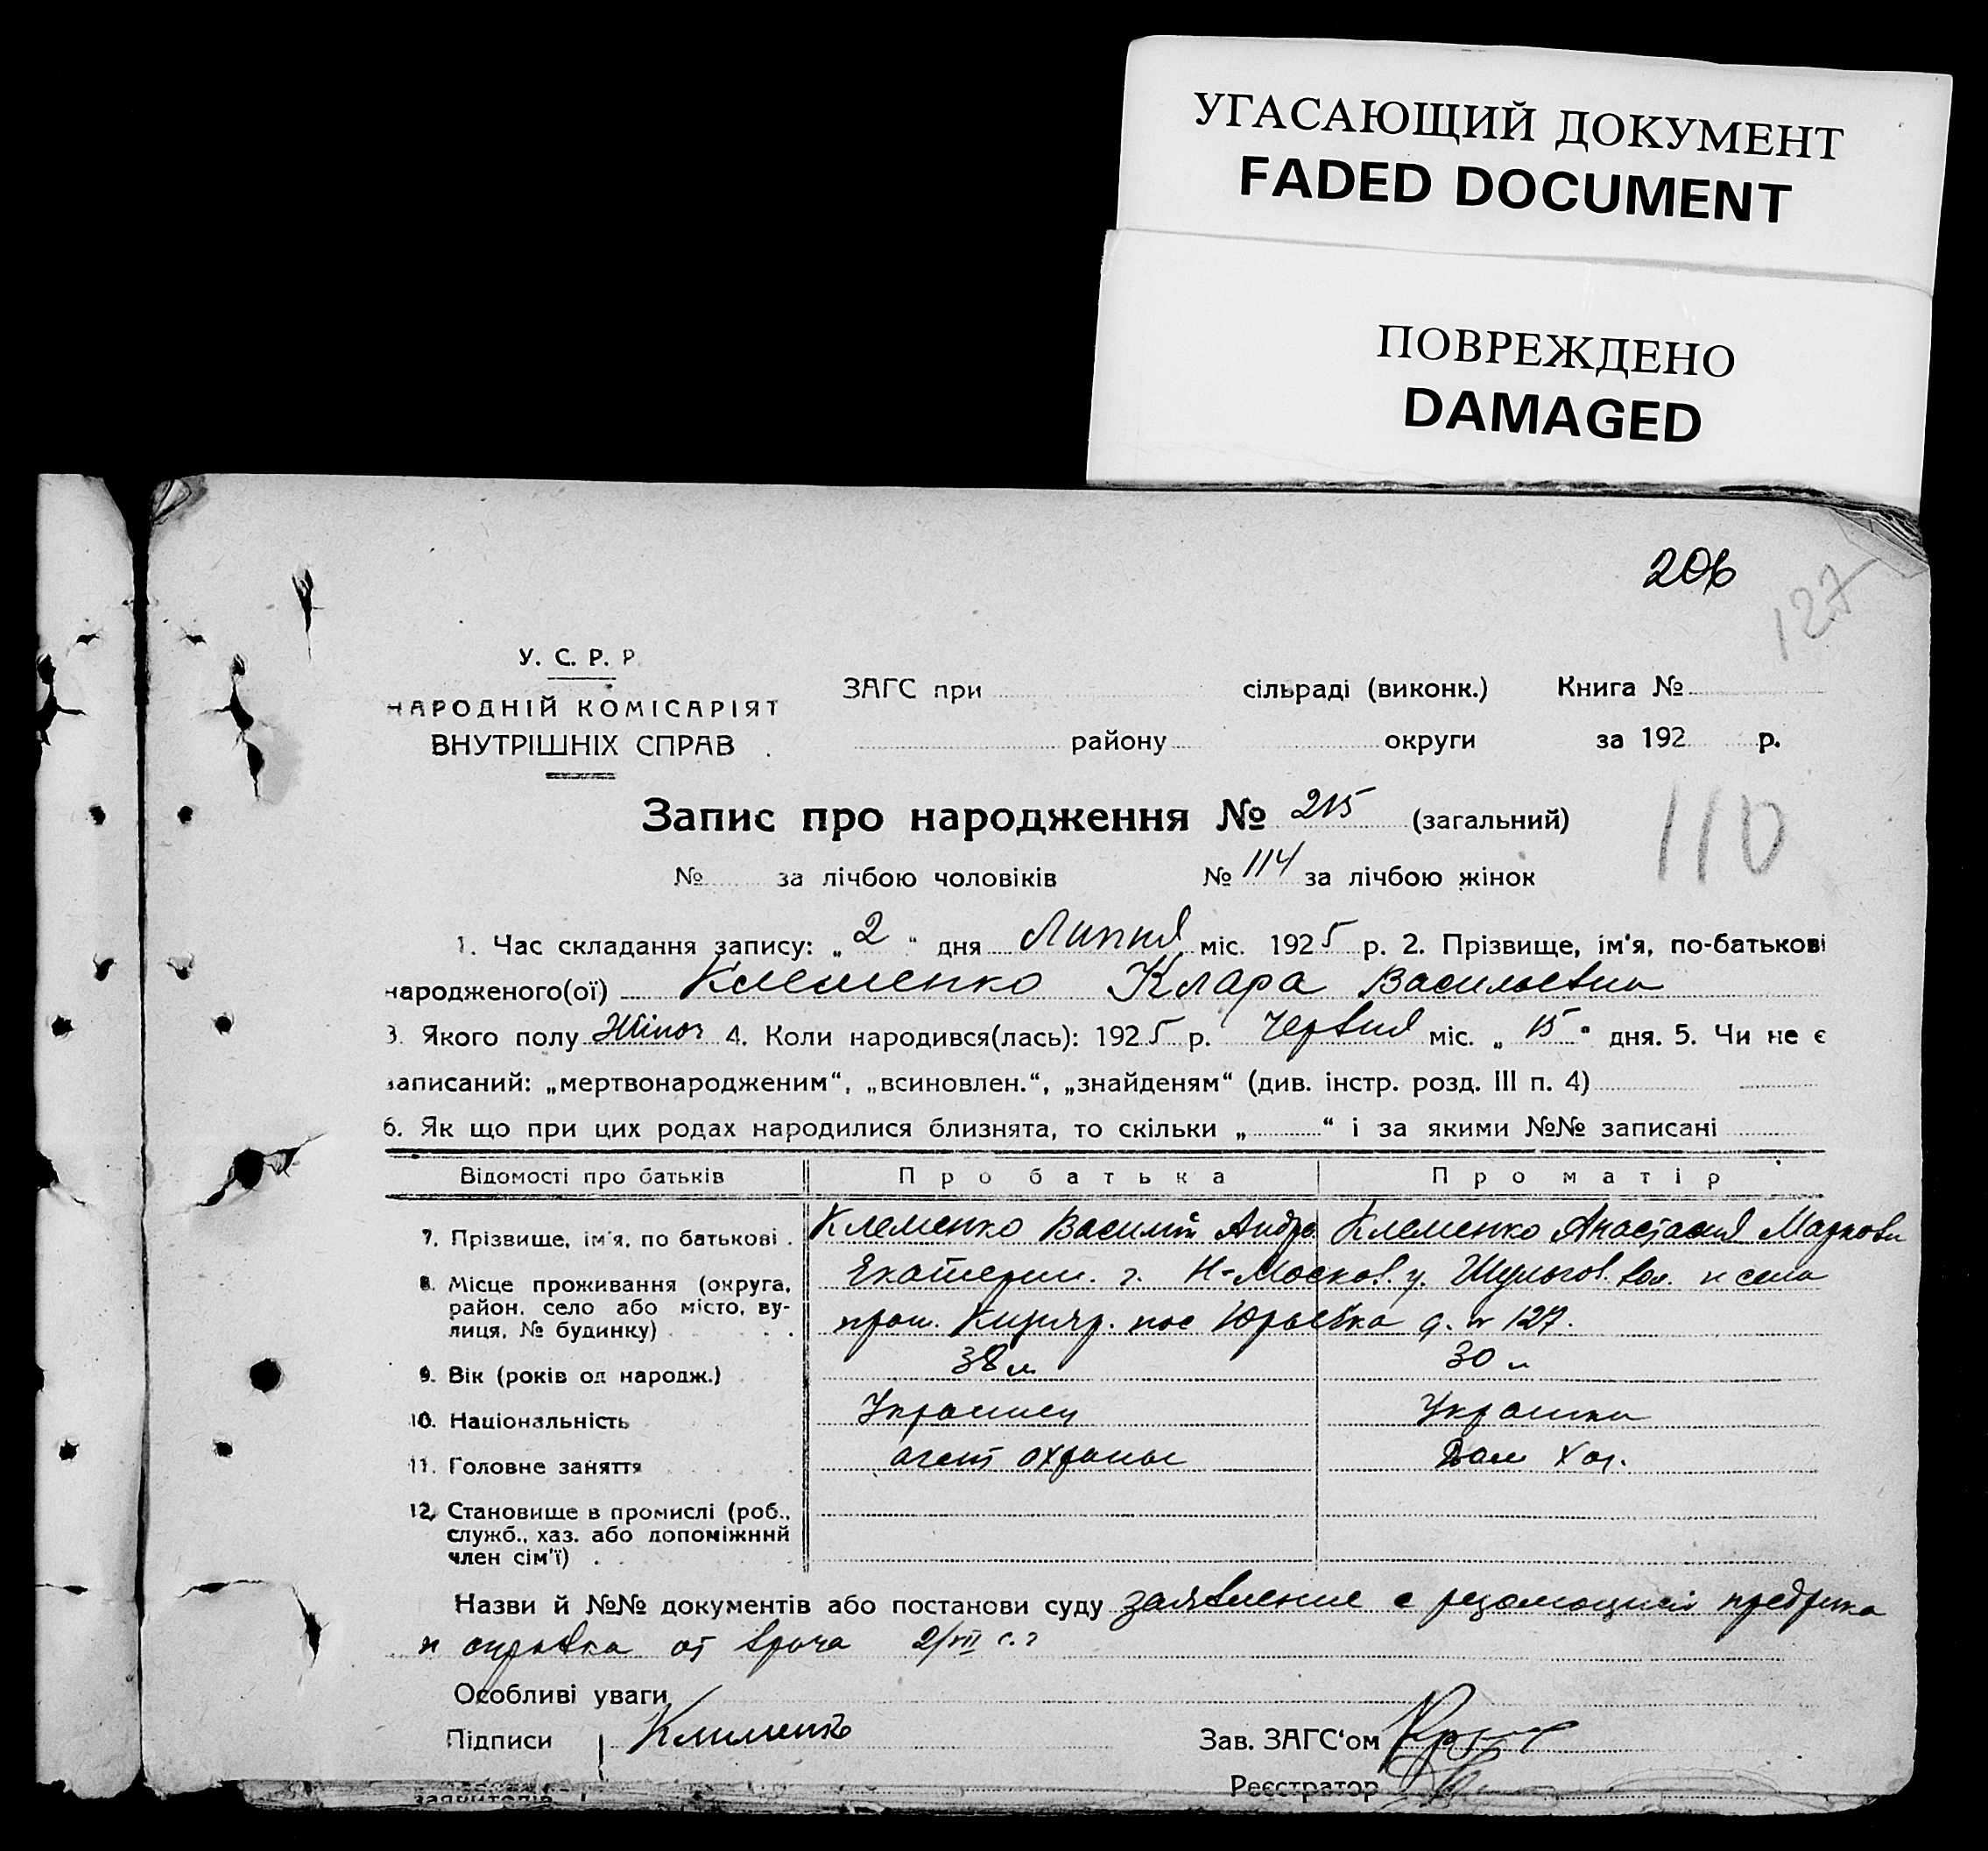 УГАСАЮЩИЙ ДОКУМЕНТ
FADED DOCUMENT
ПОВРЕЖДЕНО
DAMAGED
206
127
У. С. Р. Р.
НАРОДНІЙ КОМІСАРІЯТ
ВНУТРІШНІХ СПРАВ
ЗАГС при сільраді (виконк.) Книга №
району округи за 192 р.
Запис про народження № 215 (загальний)
110
№ за лічбою чоловіків № 114 за лічбою жінок
1. Час складання запису: „2“ дня Липня міс. 1925 р. 2. Прізвище, ім'я, по-батькові
народженого(ої) Клеменко Клара Васильевна
3. Якого полу Жіноч 4. Коли народився(лась): 1925 р. Червня міс. „15“ дня. 5. Чи не є
записаний: „мертвонародженим“, „всиновлен.“, „знайденям“ (див. інстр. розд. III п. 4)
6. Як що при цих родах народилися близнята, то скільки „ “ і за якими №№ записані
Відомості про батьків Про батька Про матір
7. Прізвище, ім'я, по батькові Клеменко Василий Андре Клеменко Анастасия Маркови
8. Місце проживання (округа, район, село або місто, вулиця, № будинку) Екатерин. г. Н-Москов. у. Шульгов. вол. и села
прож. поc Юрьевка д. № 127.
9. Вік (років од народж.) 38 л. 30 л
10. Національність Украинец Украинка
11. Головне заняття агент охраны Дом хоз.
12. Становище в промислі (роб., служб., хаз. або допоміжний член сім'ї)
Назви й №№ документів або постанови суду заявление с резолюцией предрика
и справка от врача 2/VII с. г
Особливі уваги
Підписи Клименко Зав. ЗАГС'ом
заявителів Реєстратор